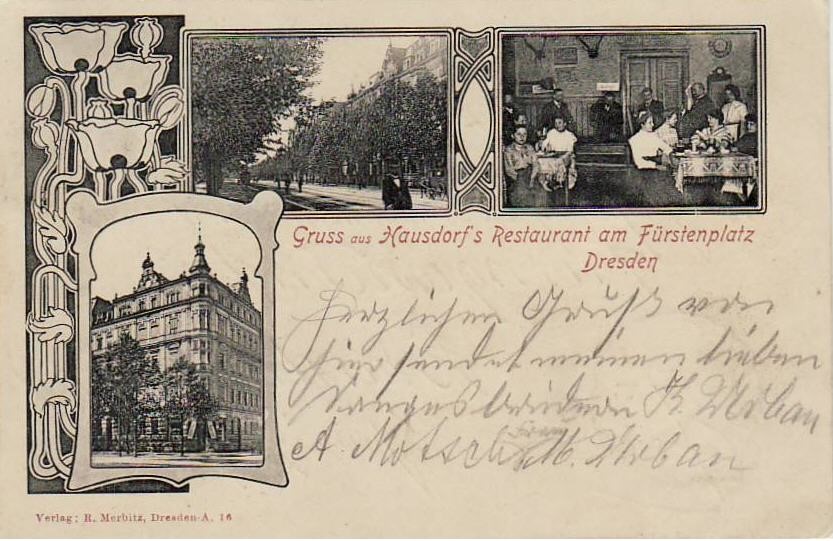 Gruss aus Hausdorf's Restaurant am Fürstenplatz
Dresden
Herzlichen Gruß von
hier sendet meinen lieben
Sangesbrüdern K. Urban
A. Motsch M. Urban
Verlag: R. Merbitz, Dresden-A. 16